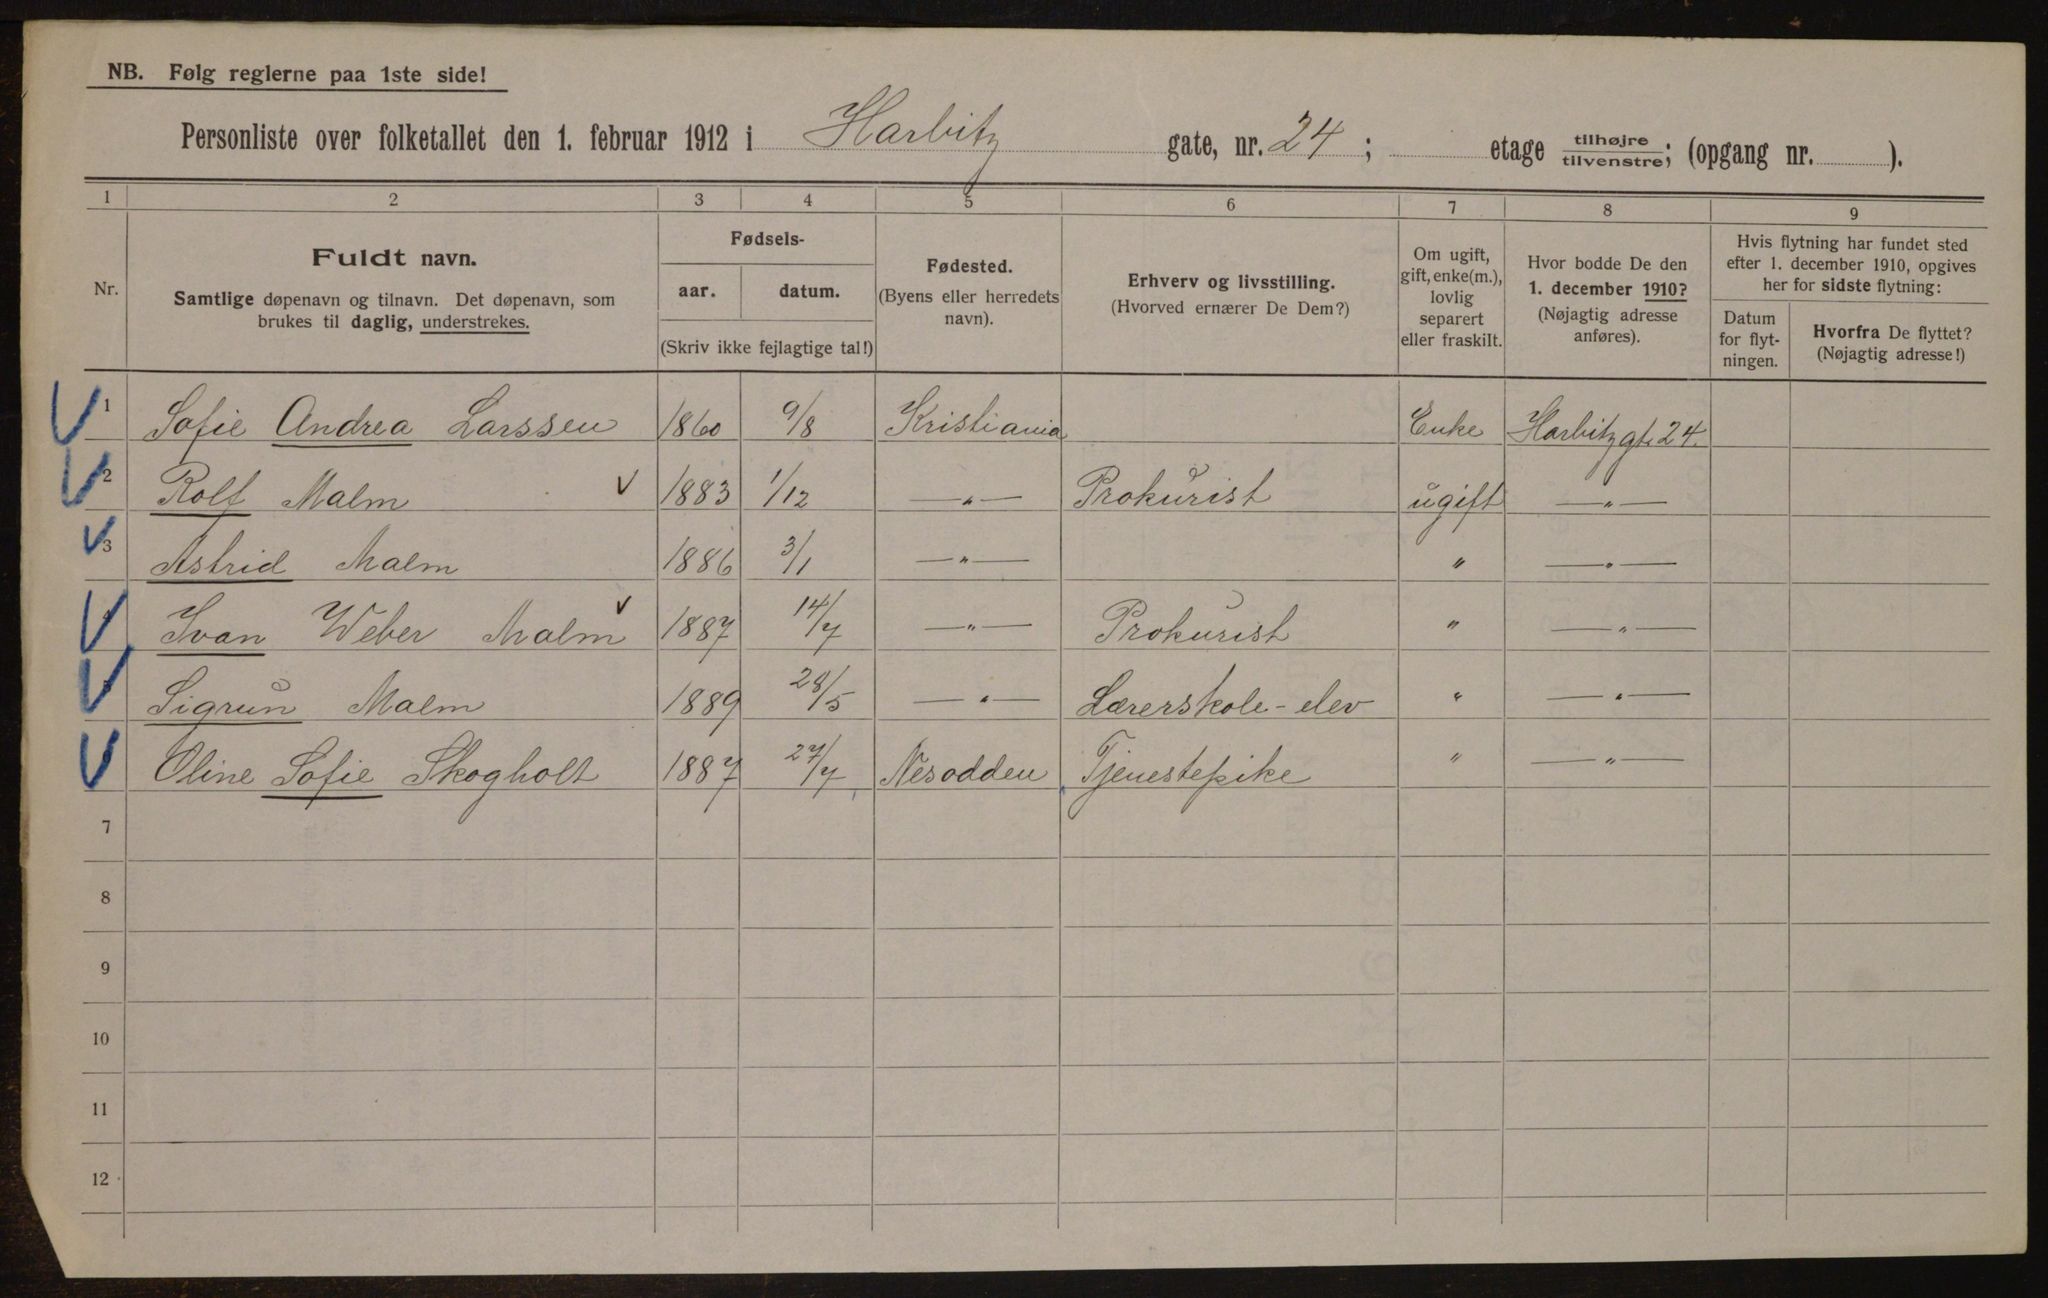 NB. Følg reglerne paa 1ste side!
Personliste over folketallet den 1. februar 1912 i Harbitz gate, nr. 24; etage tilhøjre/tilvenstre; (opgang nr. ).
1 2 3 4 5 6 7 8 9
Nr.
Fuldt navn.
Samtlige døpenavn og tilnavn. Det døpenavn, som
brukes til daglig, understrekes.
Fødsels-
aar. datum.
(Skriv ikke fejlagtige tal!)
Fødested.
(Byens eller herredets
navn).
Erhverv og livsstilling.
(Hvorved ernærer De Dem?)
Om ugift,
gift, enke(m.),
lovlig
separert
eller fraskilt.
Hvor bodde De den
1. december 1910?
(Nøjagtig adresse
anføres).
Hvis flytning har fundet sted
efter 1. december 1910, opgives
her for sidste flytning:
Datum
for flyt-
ningen.
Hvorfra De flyttet?
(Nøjagtig adresse!)
1 Sofie Andrea Larssen 1860 9/8 Kristiania Enke Harbitzgt. 24.
2 Rolf Malm 1883 1/12 —"— Prokurist ugift —"—
3 Astrid Malm 1886 3/1 —"— " —"—
Ivan Weber Malm 1887 14/7 —"— Prokurist " —"—
Sigrun Malm 1889 28/5 —"— Lærerskole-elev " —"—
Oline Sofie Skogholt 1887 27/7 Nesodden Tjenestepike " —"—
7
8
9
10
11
12